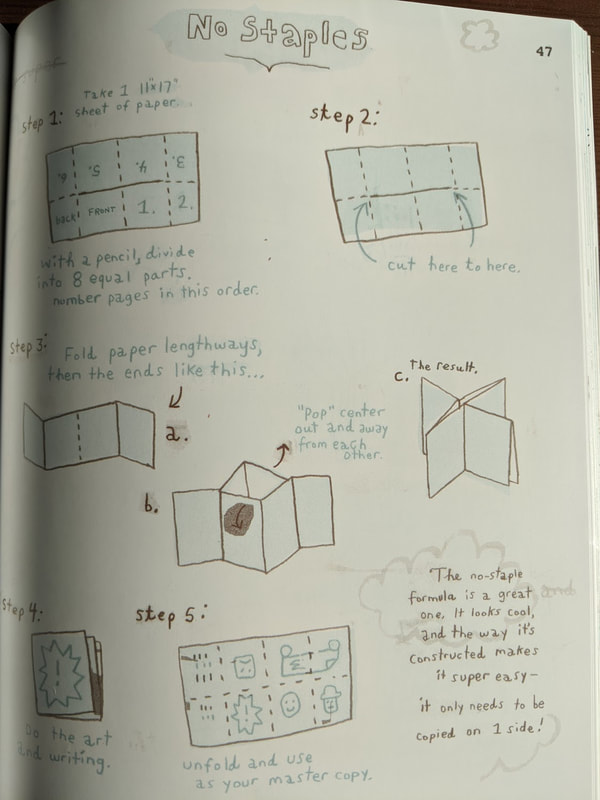 No Staples
47
step 1:
Take 1 11"x17"
sheet of paper...
6. 5. 4. 3.
back FRONT 1. 2.
with a pencil, divide
into 8 equal parts.
number pages in this order.
step 2:
cut here to here.
step 3:
Fold paper lengthways,
then the ends like this...
a.
b.
"Pop" center
out and away
from each
other.
c.
The result.
step 4:
Do the art
and writing.
step 5:
unfold and use
as your master copy.
The no-staple
formula is a great
one. It looks cool,
and the way it's
constructed makes
it super easy—
it only needs to be
copied on 1 side!